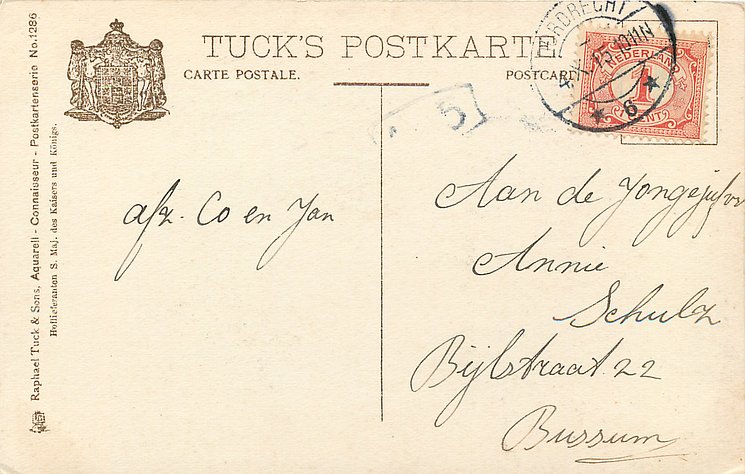 TUCK'S POSTKARTE
CARTE POSTALE.
POSTCARD
DORDRECHT
10-11N
6
NEDERLAND
1
CENT
5
Raphael Tuck & Sons, Aquarell - Connaisseur - Postkartenserie No. 1286
Hoflieferanten S. Maj. des Kaisers und Königs.
afz. Co en Jan
Aan de Jongejufvr
Annie
Schulz
Bijlstraat 22
Bussum